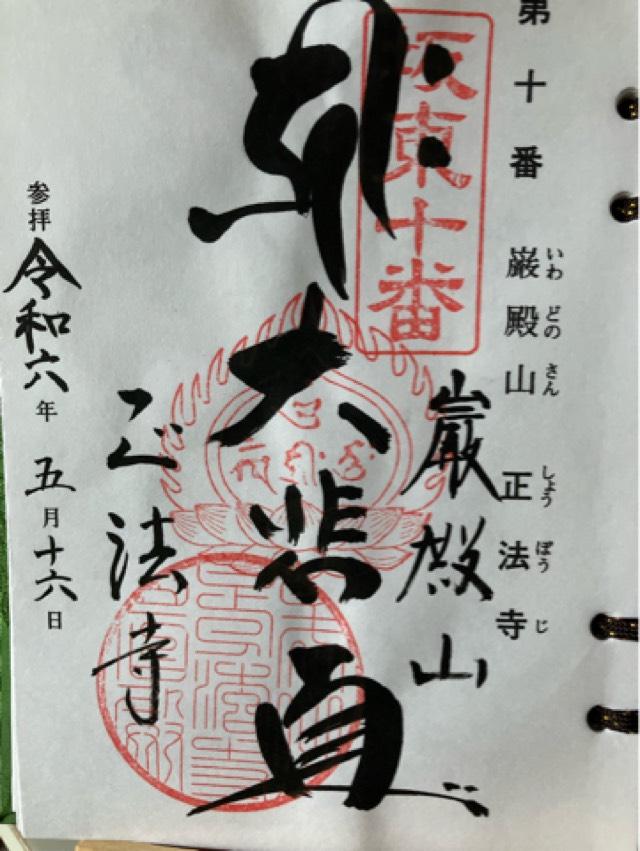 第十番 巌殿山 正法寺
いわ どの さん しょう ぼう じ
坂東十番
巌殿山
大悲
法寺
参拝 令和六年 五月十六日